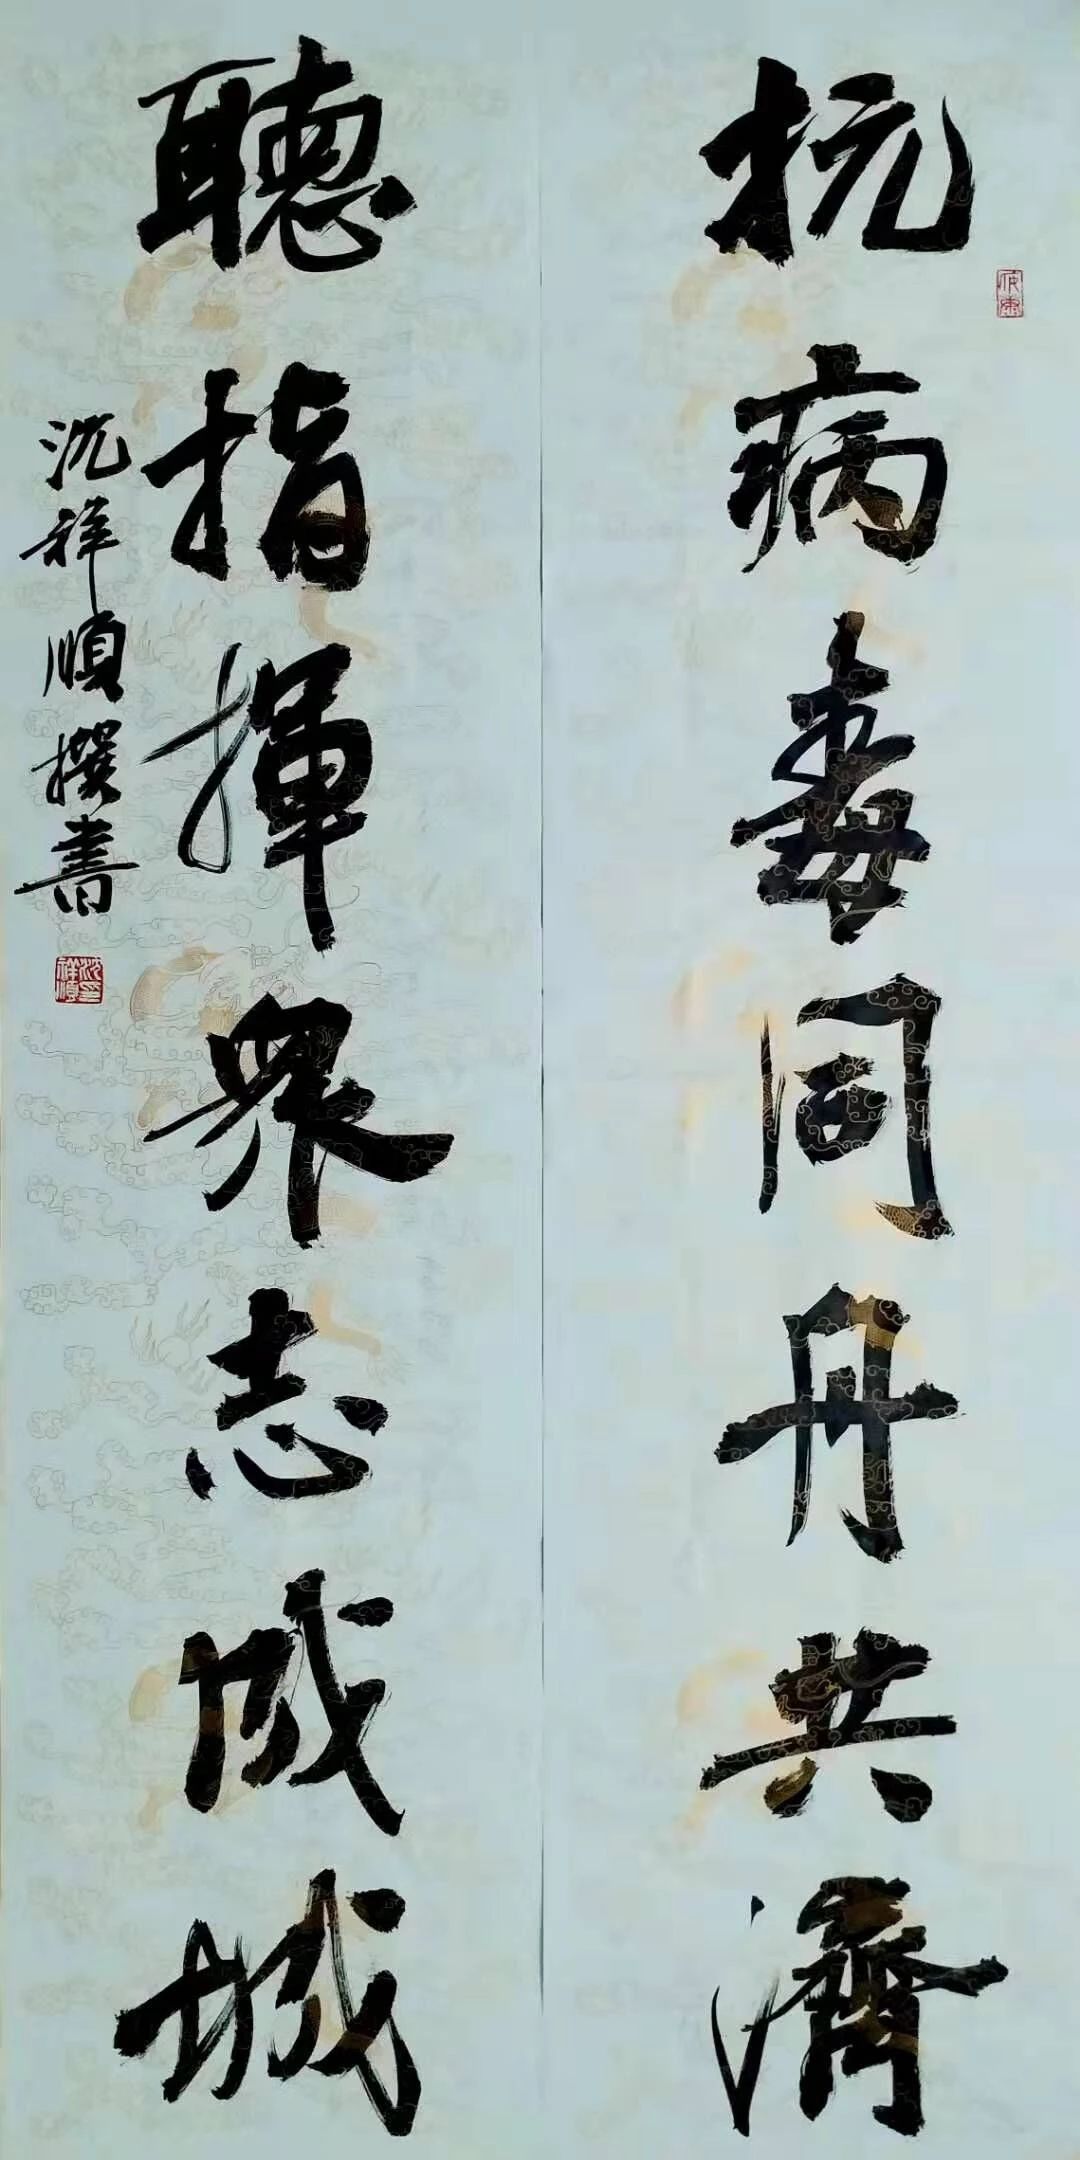 抗病毒同舟共濟
聽指揮衆志成城
沈祥順撰書